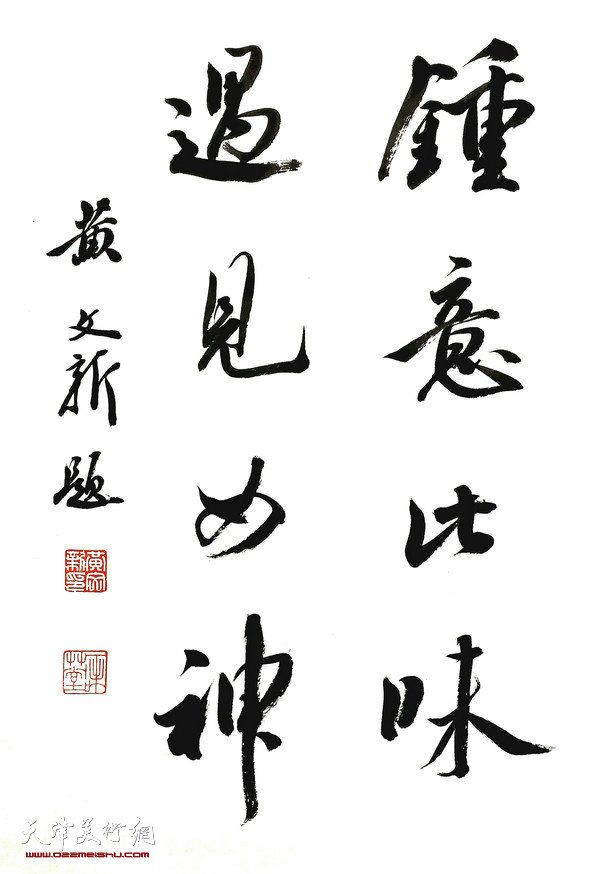 鍾意此味
遇見女神
黄文新題
黃文新印
天津美術網
www.022meishu.com